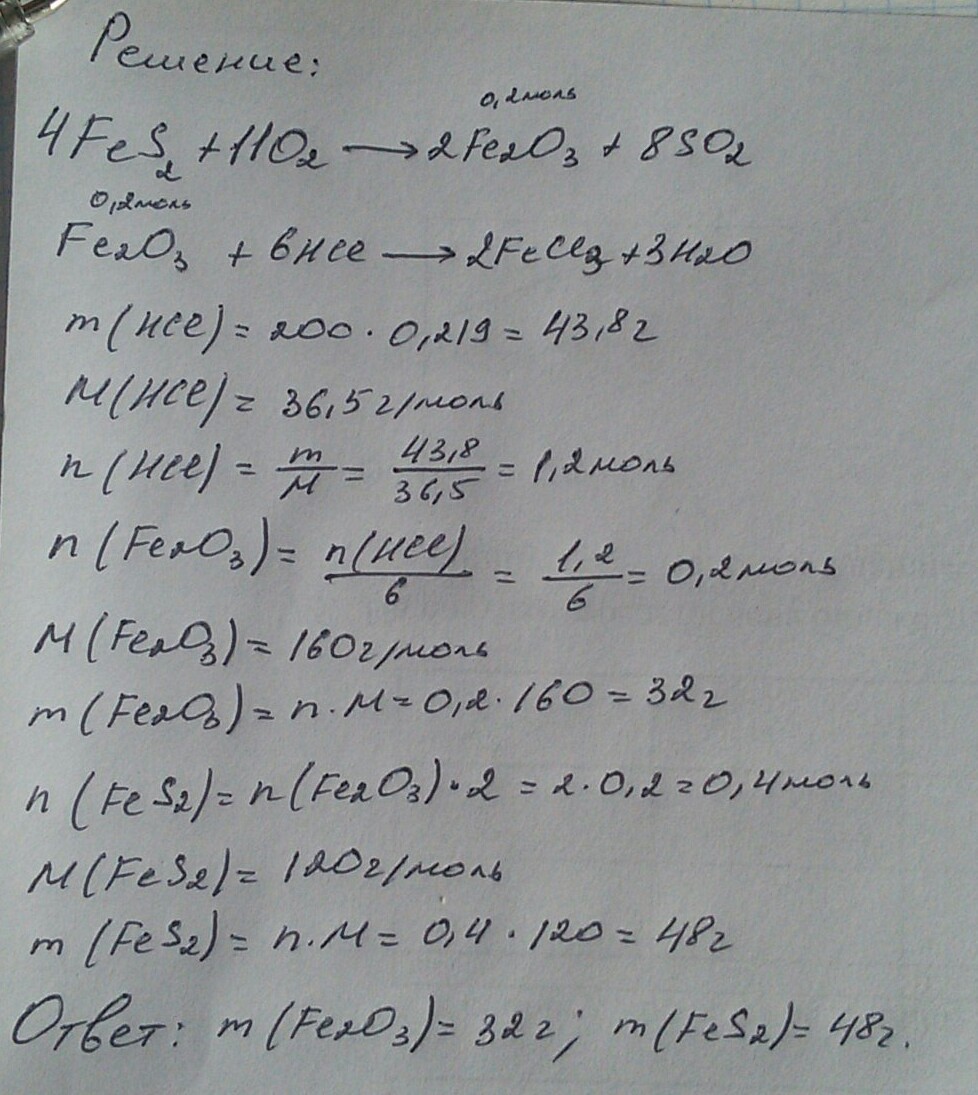 Решение:
0,2моль
4FeS2 + 11O2 → 2Fe2O3 + 8SO2
0,2моль
Fe2O3 + 6HCl → 2FeCl3 + 3H2O
m(HCl) = 200 · 0,219 = 43,8г
M(HCl) = 36,5г/моль
n(HCl) = m/M = 43,8/36,5 = 1,2моль
n(Fe2O3) = n(HCl)/6 = 1,2/6 = 0,2моль
M(Fe2O3) = 160г/моль
m(Fe2O3) = n·M = 0,2·160 = 32г
n(FeS2) = n(Fe2O3)·2 = 2·0,2 = 0,4моль
M(FeS2) = 120г/моль
m(FeS2) = n·M = 0,4·120 = 48г
Ответ: m(Fe2O3) = 32г; m(FeS2) = 48г.